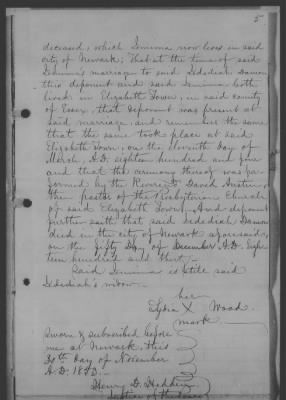 5
deceased, which Jemima now lives in said
city of Newark; That at the time of said
Jemima's marriage to said Jedediah Damon
this deponent and said Jemima both
lived in Elizabeth Town, in said county
of Essex, that deponent was present at
said marriage and remembers the same
that the same took place at said
Elizabeth Town, on the eleventh day of
March, A.D. eighteen hundred and four
and that the ceremony thereof was per-
formed by the Reverend David Austin,
the pastor of the Presbyterian Church
of said Elizabeth Town. And deponent
further saith that said Jedediah Damon
died in the city of Newark aforesaid,
on the fifth day of December A.D. Eigh-
teen hundred and thirt
Said Jemima is still said
Jedediah's widow.
her
Lydia X Wood.
mark
Sworn & subscribed before
me at Newark, this
day of November
A.D. 1843.
Henry D.